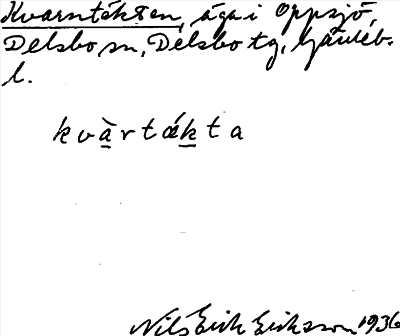 Kvarntäkten, äga i Oppsjö,
Delsbo sn, Delsbo tg, Gävleb.
l.
kvàrtákta
Nils Erik Eriksson 1936